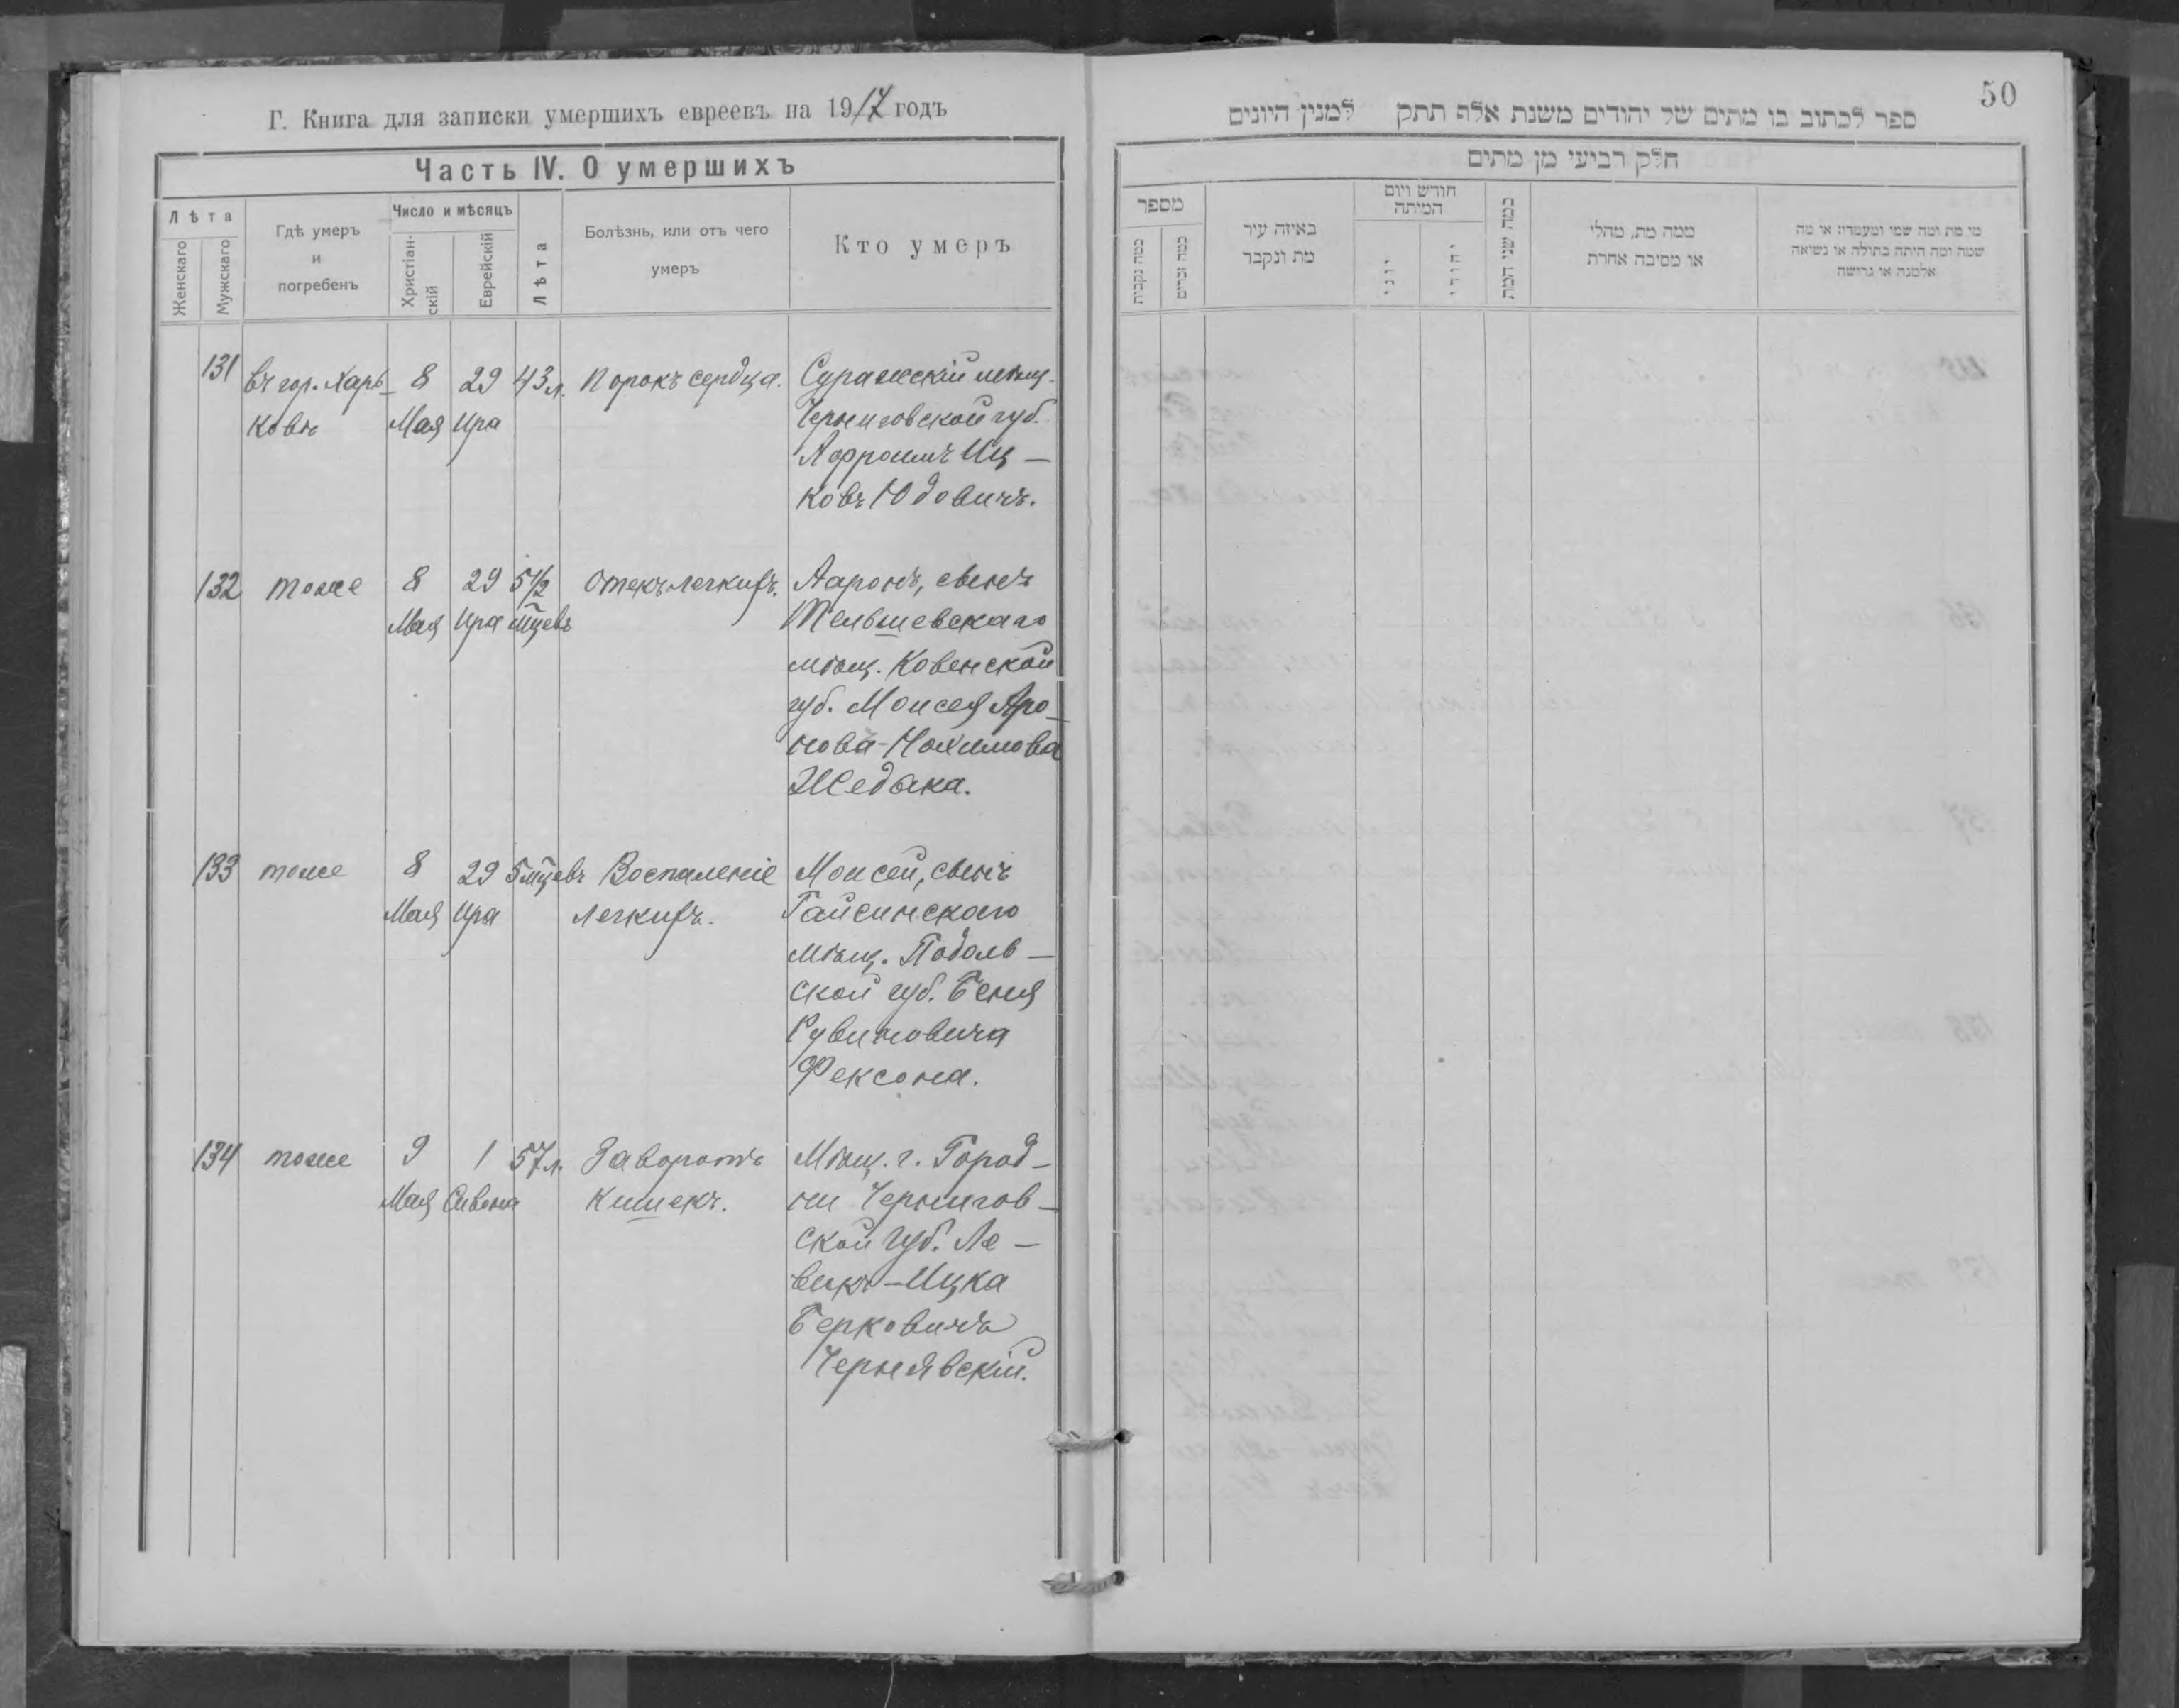 Г. Книга для записки умершихъ евреевъ на 1917 годъ
Часть IV. О умершихъ
Лѣта
Женскаго
Мужскаго
Гдѣ умеръ
и
погребенъ
Число и мѣсяцъ
Христіан-
скій
Еврейскій
Лѣта
Болѣзнь, или отъ чего
умеръ
Кто умеръ
131 въ гор. Харь- 8 29 43 л. Порокъ сердца. Суражскій мѣщ.
ковѣ Мая Ира Черниговской губ.
Афроимъ Иц-
ковъ Юдовичъ.
132 тоже 8 29 5 1/2 Отекъ легкихъ. Ааронъ, сынъ
Мая Ира мцевъ Тельшевскаго
мѣщ. Ковенской
губ. Моисея Аро-
нова-Нохимова
Жедака.
133 тоже 8 29 5 мцевъ Воспаленіе Моисей, сынъ
Мая Ира легкихъ. Гайсинскаго
мѣщ. Подоль-
ской губ. Беня
Рувиновича
Фексона.
134 тоже 9 1 57 л. Заворотъ Мѣщ. г. Город-
Мая Сивона кишекъ. ни Чернигов-
ской губ. Ле-
викъ-Ицка
Берковичъ
Чернявскій.
50
ספר לכתוב בו מתים של יהודים משנת אלף תתק למנין היונים
חלק רביעי מן מתים
מספר
כמה נקבות
כמה זכרים
באיזה עיר
מת ונקבר
חודש ויום
המיתה
יוני
יהודי
כמה שני המת
ממה מת, מחלי
או מסיבה אחרת
מי מת ומה שמו ומעמדו או מה
שמה ומה היתה בתולה או נשואה
אלמנה או גרושה